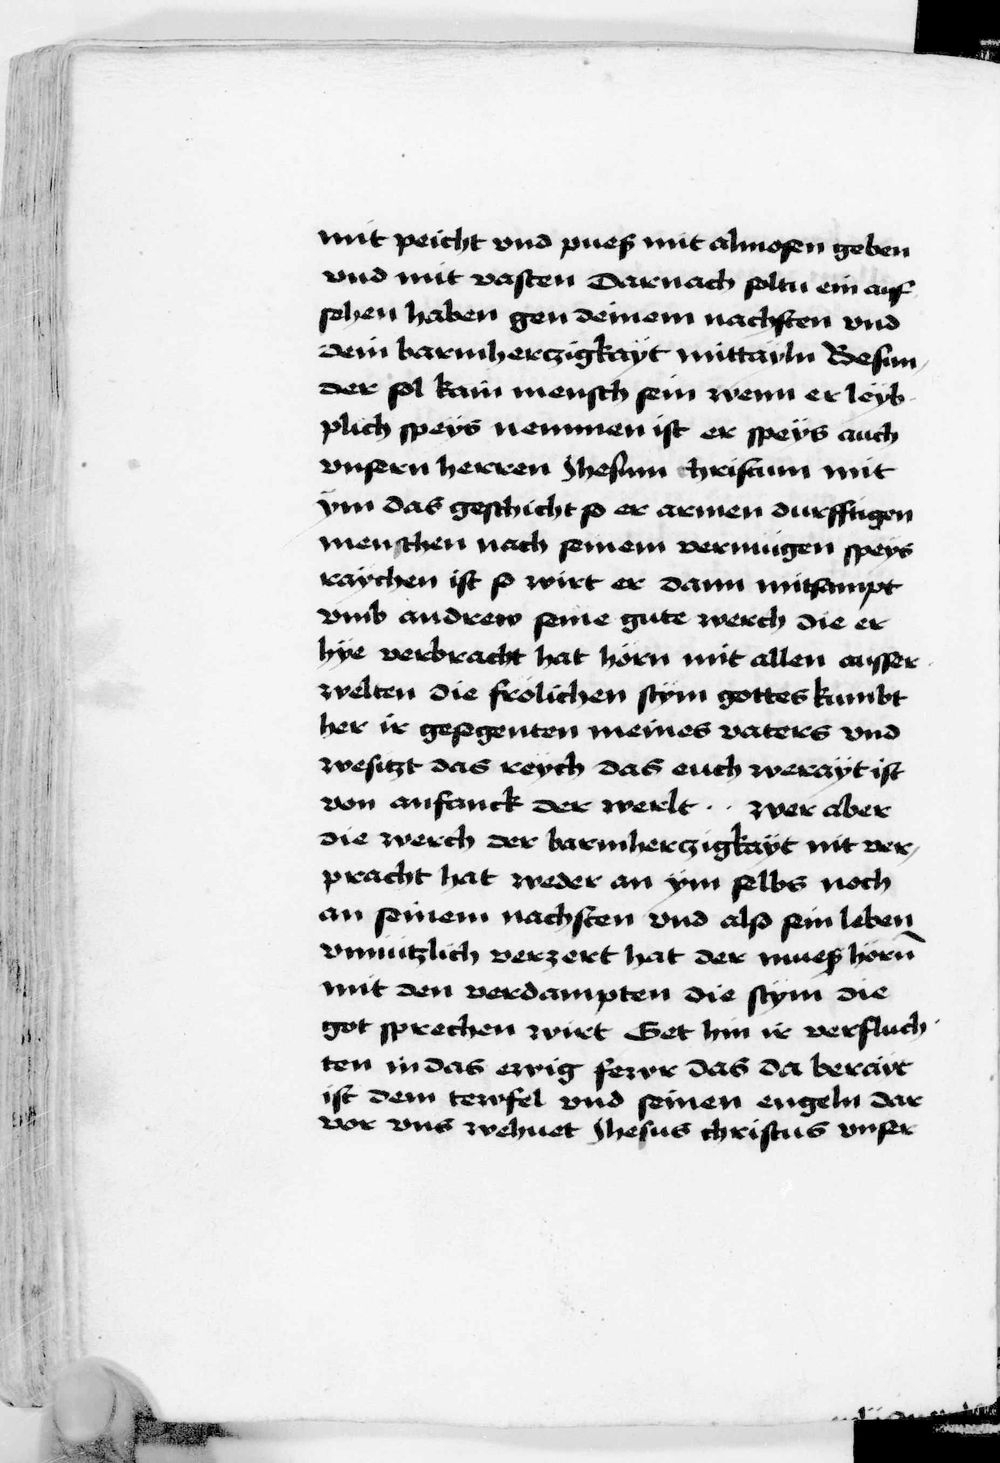 mit peicht vnd pueß mit almosen geben
vnd mit vasten Darnach soltu ein auf
sehen haben gen deinem nachsten vnd
dein barmherczigkaÿt mittayln Besun⸗
der sol kain mensch sein wenn er leÿb⸗
plich speÿs nemmen ist er speÿs auch
vnsern herren Jhesum christum mit
ÿm das geschicht so er armen durfftigen
menschen nach seinem vermugen speÿs
raÿchen ist so wirt er dann mitsampt
vmb andrew seine gute werch die er
hÿe verbracht hat hörn mit allen ausser⸗
welten die frölichen stÿm gottes kumbt
her ir gesegenten meines vaters vnd
wesitzt das reÿch das euch weraÿt ist
von anfanck der werlt · · wer aber
die werch der barmherczigkaÿt nit ver⸗
pracht hat weder an ÿm selbs noch
an seinem nachsten vnd also sein leben
vnnützlich verzert hat der mueß hörn
mit den verdampten die stÿm die
got sprechen wirt Get hin ir verfluch⸗
ten in das ewig fewr das da beraÿt
ist dem tewfel vnd seinen engeln dar
vor vns wehuet Jhesus christus vnser